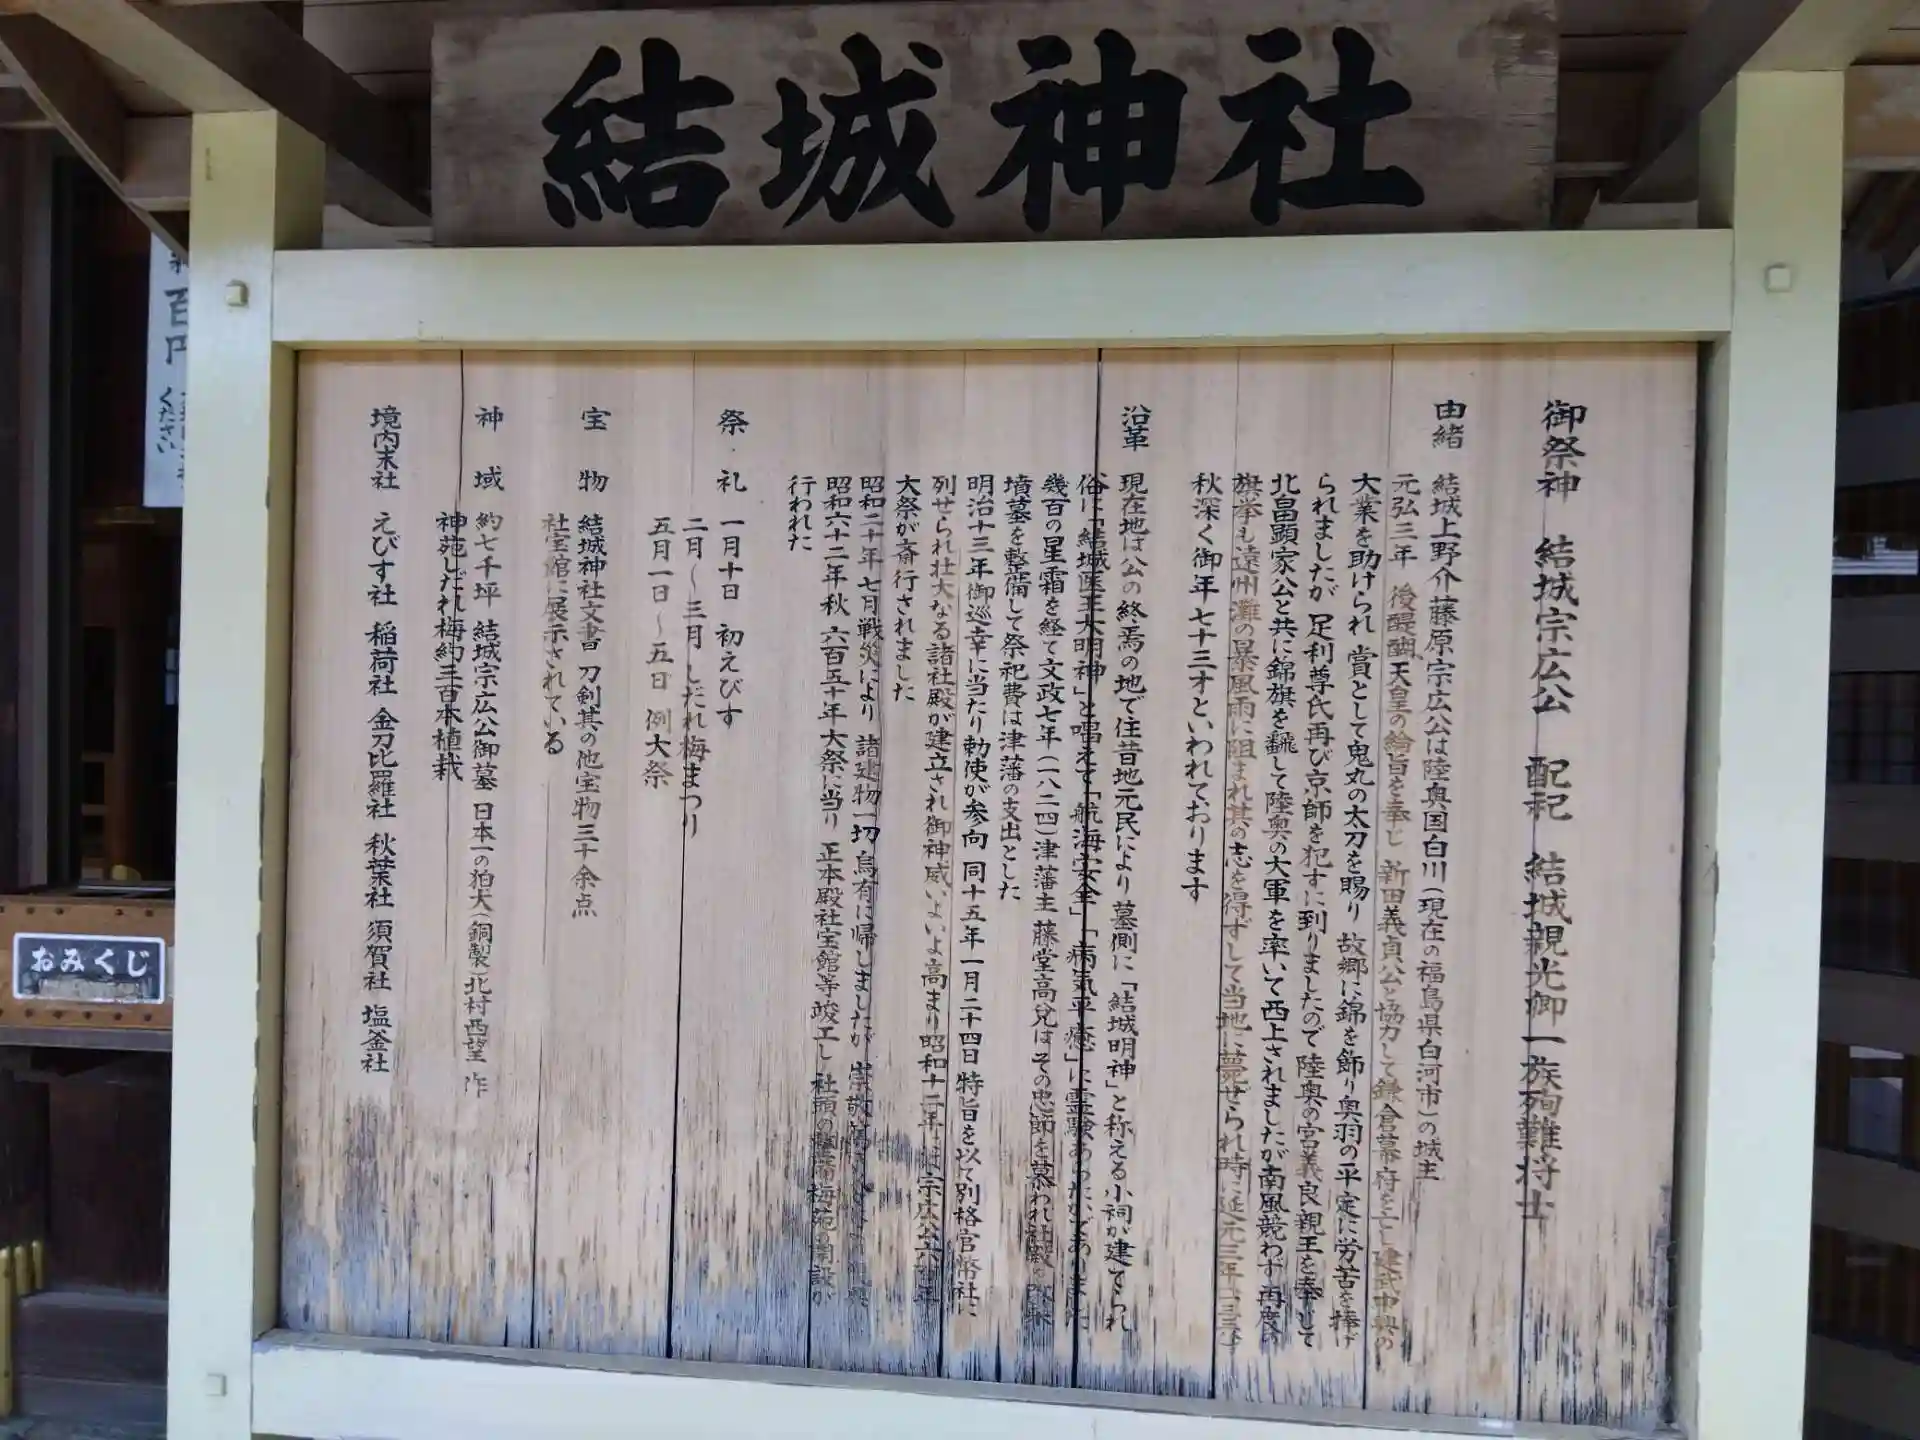 結城神社
御祭神 結城宗広公 配祀 結城親光卿一族殉難将士
由緒 結城上野介藤原宗広公は陸奥国白川(現在の福島県白河市)の城主
元弘三年 後醍醐天皇の綸旨を奉じ 新田義貞公と協力して鎌倉幕府を亡し建武中興の
大業を助けられ 賞として鬼丸の太刀を賜り 故郷に錦を飾り奥羽の平定に労苦を捧げ
られましたが 足利尊氏再び京師を犯すに到りましたので 陸奥の宮義良親王を奉じて
北畠顕家公と共に錦旗を飜して陸奥の大軍を率いて西上されましたが南風競わず 再度の
旗挙も遠州灘の暴風雨に阻まれ其の志を得ずして当地に薨ぜられ時に延元三年
秋深く御年七十三才といわれております
沿革 現在地は公の終焉の地で往昔地元民により墓側に「結城明神」と称える小祠が建てられ
俗に「結城医王大明神」と唱えて「航海安全」「病気平癒」に霊験あらたかでありました
幾百の星霜を経て文政七年(一八二四)津藩主藤堂高兌は その忠節を慕われ社殿を改築
墳墓を整備して祭祀費は津藩の支出とした
明治十三年御巡幸に当たり勅使が参向 同十五年一月二十四日特旨を以て別格官幣社に
列せられ壮大なる諸社殿が建立され御神威いよいよ高まり昭和十二年には宗広公六百年
大祭が斎行されました
昭和二十年七月戦災により 諸建物一切烏有に帰しましたが 崇敬
昭和六十二年秋 六百五十年大祭に当り 正本殿社宝館等竣工し 社頭の整備梅苑の開設が
行われた
祭礼 一月十日 初えびす
二月〜三月 しだれ梅まつり
五月一日〜五日 例大祭
宝物 結城神社文書 刀剣其の他宝物三十余点
社宝館に展示されている
神域 約七千坪 結城宗広公御墓 日本一の狛犬(銅製)北村西望 作
神苑しだれ梅約三百本植栽
境内末社 えびす社 稲荷社 金刀比羅社 秋葉社 須賀社 塩釜社
百円
ください
おみくじ